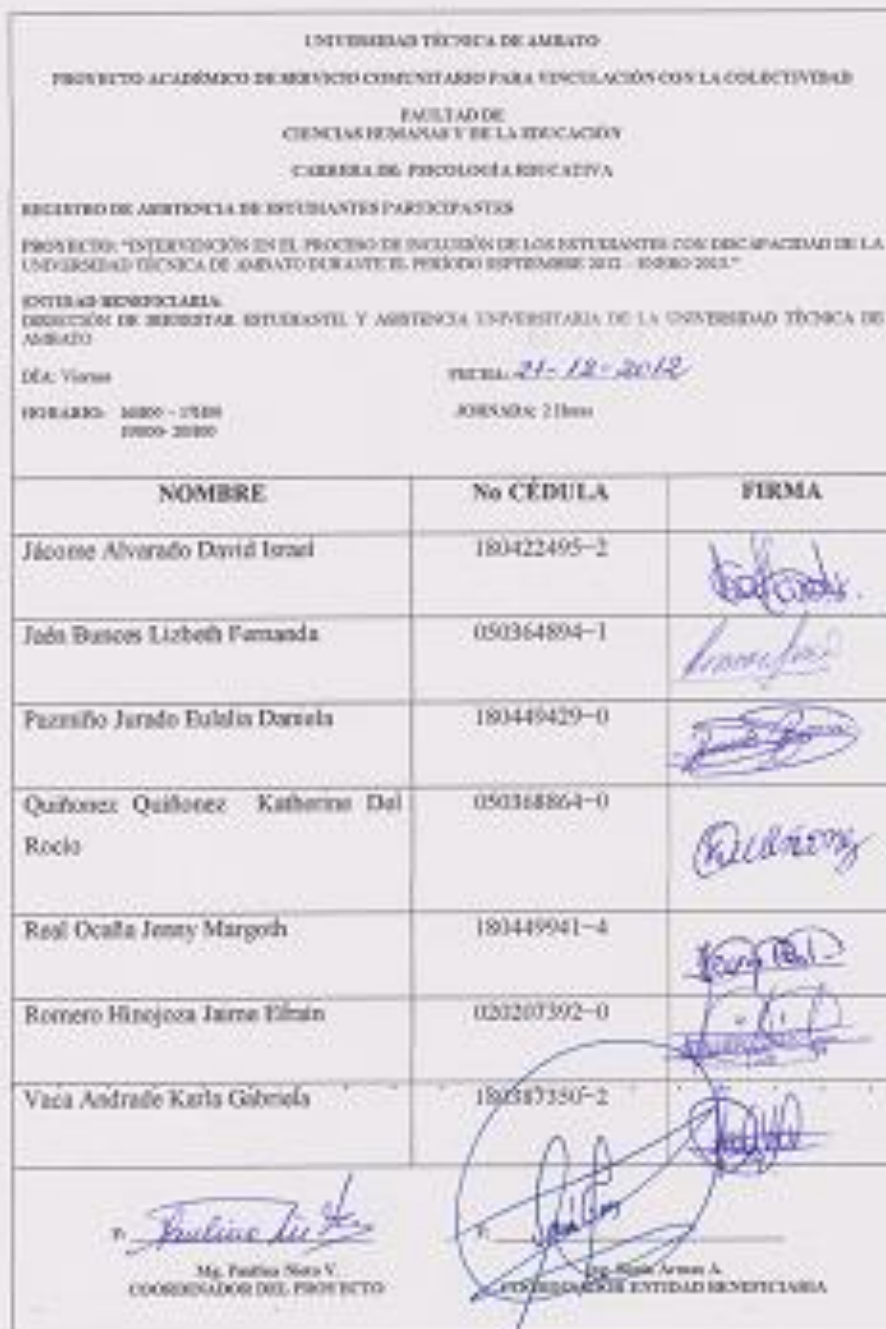 UNIVERSIDAD TÉCNICA DE AMBATO
PROYECTO ACADÉMICO DE SERVICIO COMUNITARIO PARA VINCULACIÓN CON LA COLECTIVIDAD
FACULTAD DE
CIENCIAS HUMANAS Y DE LA EDUCACIÓN
CARRERA DE: PSICOLOGÍA EDUCATIVA
REGISTRO DE ASISTENCIA DE ESTUDIANTES PARTICIPANTES
PROYECTO: "INTERVENCIÓN EN EL PROCESO DE INCLUSIÓN DE LOS ESTUDIANTES CON DISCAPACIDAD DE LA
UNIVERSIDAD TÉCNICA DE AMBATO DURANTE EL PERÍODO SEPTIEMBRE 2012 - ENERO 2013."
ENTIDAD BENEFICIARIA:
DIRECCIÓN DE BIENESTAR ESTUDIANTIL Y ASISTENCIA UNIVERSITARIA DE LA UNIVERSIDAD TÉCNICA DE
AMBATO
DÍA: Viernes FECHA: 21-12-2012
HORARIO: JORNADA: 2 Horas
NOMBRE No CÉDULA FIRMA
Jácome Alvarado David Israel 180422495-2
Jaén Bunces Lizbeth Fernanda 050364894-1
Pazmiño Jurado Eulalia Daniela 180449429-0
Quiñonez Quiñonez Katherine Del 050368864-0
Rocío
Real Ocaña Jenny Margoth 180449941-4
Romero Hinojoza Jaime Efraín 020207392-0
Vaca Andrade Karla Gabriela 180387350-2
Mg. Paulina Nieto V. Armas A.
COORDINADOR DEL PROYECTO COORDINADOR ENTIDAD BENEFICIARIA